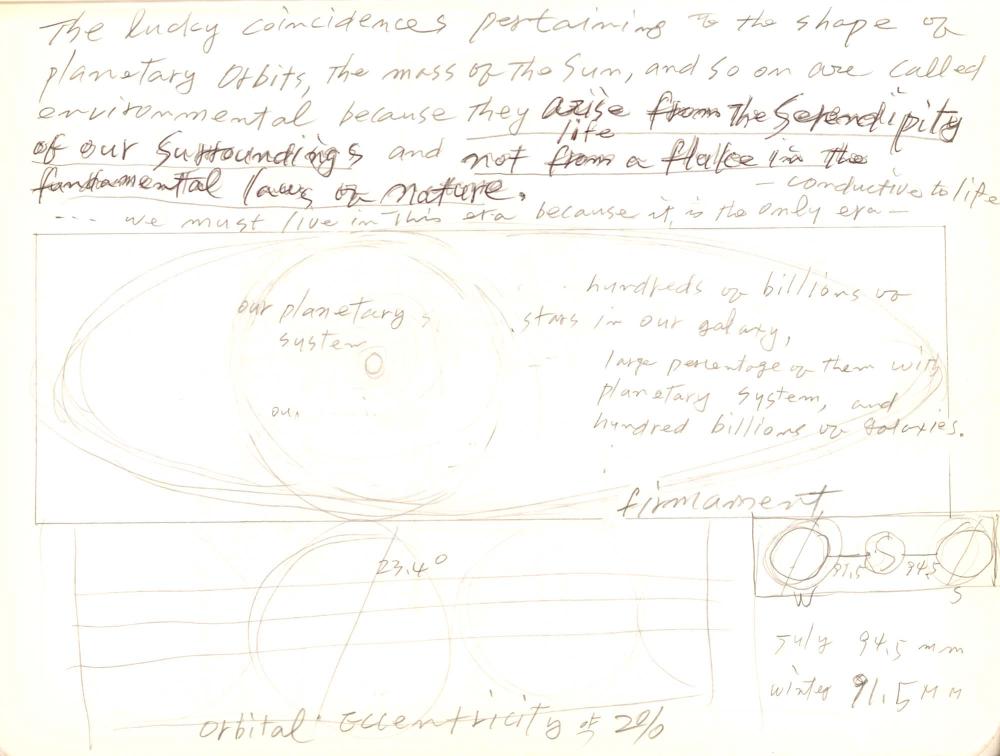 The lucky coincidences pertaining to the shape of
planetary orbits, the mass of the Sun, and so on are called
environmental because they arise from the Serendipity
of our Surroundings and not from a fluke in the
life
fundamental laws of nature.
— conductive to life
--- we must live in this era because it is the only era —
our planetary
system
hundreds of billions of
stars in our galaxy,
large percentage of them with
planetary system, and
hundred billions of galaxies.
our
firmament
23.4°
91.5 S 94.5
W S
July 94.5 mm
winter 91.5 MM
Orbital Eccentricity of 2%